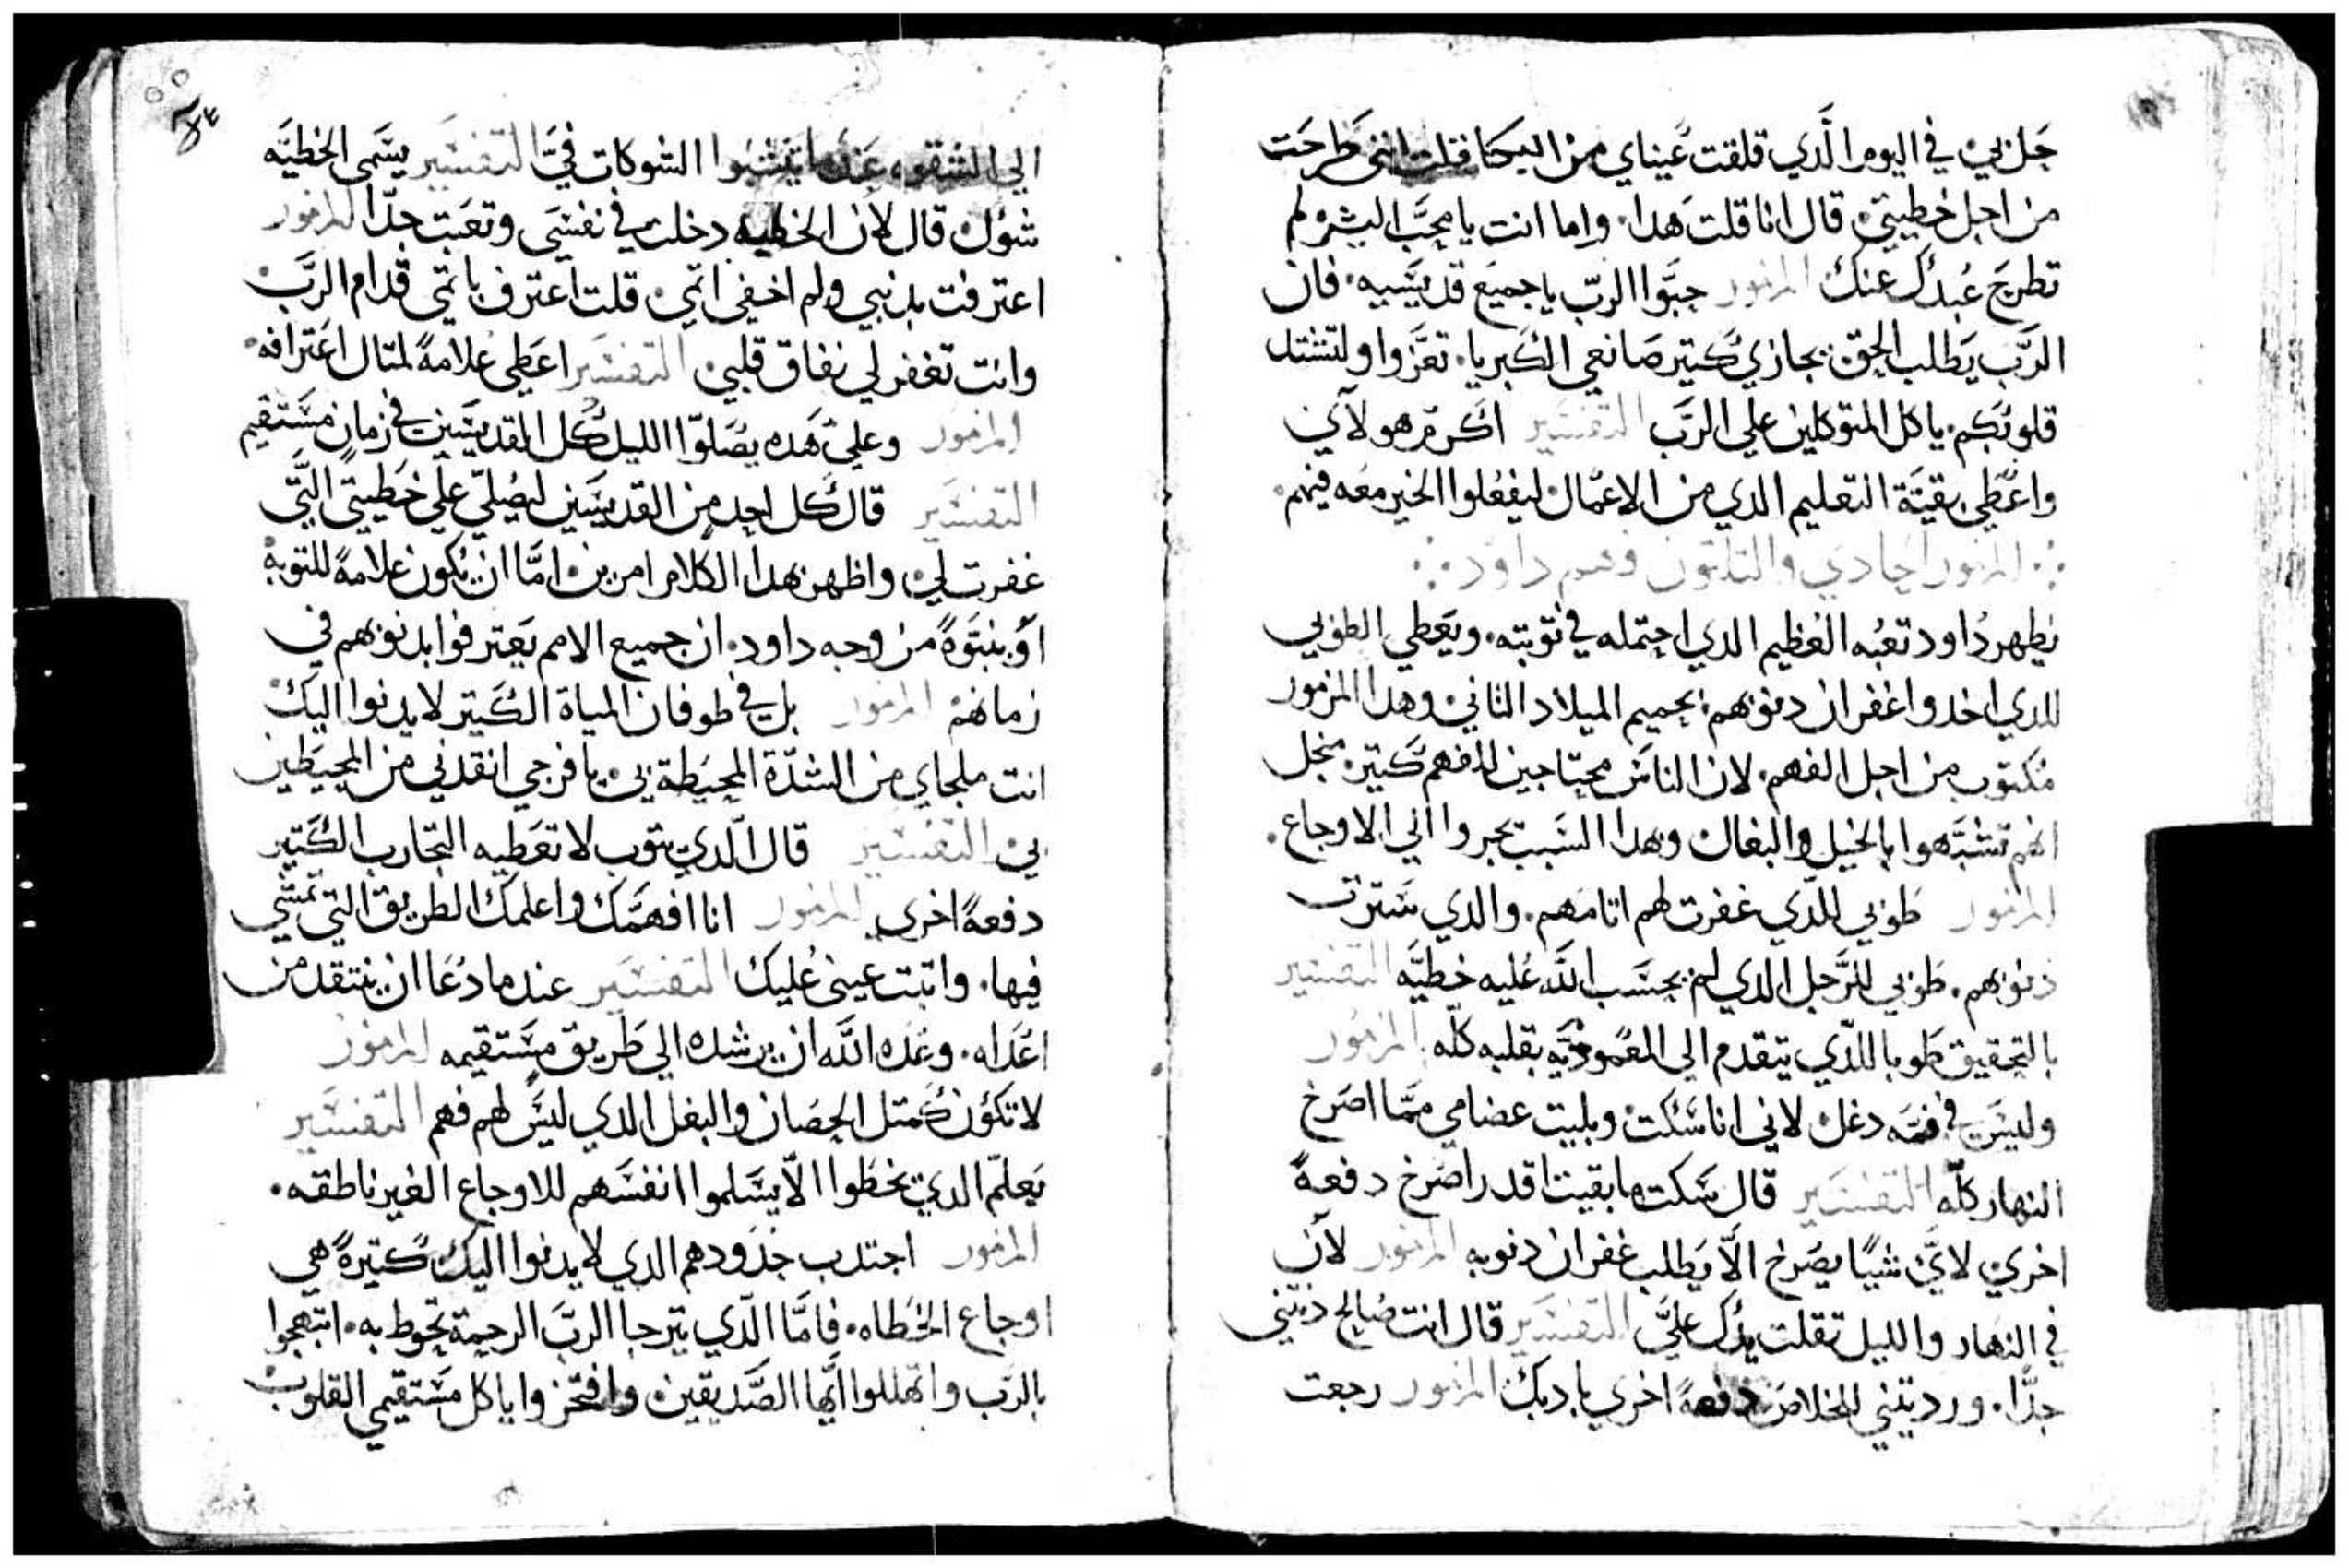 حل بي في اليوم الدي قلقت عيناي من البكا فقلت انني طرحت
من اجل خطيتي. قال انا قلت هدا. واما انت يا محب البشر لم
تطرح عبدك عنك المزمور حبوا الرب يا جميع قديسيه. فان
الرب يطلب الحق. يجازي كتير صانعي الكبريا. تعزوا ولتشتد
قلوبكم. يا كل المتوكلين علي الرب التفسير اكرم هولاي
واعطي بقية التعليم الدي من الاعمال ليفعلوا الخير معه فيهم.
المزمور الحادي والتلتون فهم داود
يظهر داود تعبه العظيم الدي احتمله في توبته. ويعطي الطوبي
للدي اخدوا غفران دنوبهم بحميم الميلاد التاني وهدا المزمور
مكتوب من اجل الفهم. لان الناس محتاجين لافهم كتير. منجل
انهم تشبهوا بالخيل والبغال وهدا السبب يجروا الي الاوجاع.
المزمور طوبي للدي غفرت لهم اتامهم. والدي سترت
دنوبهم. طوبي للرجل الدي لم يحسب الله عليه خطيه التفسير
بالتحقيق طوبا للدي يتقدم الي المعموديه بقلبه كله المزمور
وليس في فمه دغل لاني انا سكت وبليت عضامي مما اصرخ
النهار كله التفسير قال سكت ما بقيت اقدر اصرخ دفعة
اخري لاي شيا يصرخ الا يطلب غفران دنوبه المزمور لان
في النهار والليل تقلت يدك علي التفسير قال انت صالح دنتني
جدا. ورديتني للخلاص دفعة اخري بادبك المزمور رجعت
الي الشقوه عندما يتشبوا الشوكات في التفسير يسمي الخطيه
شوك قال لان الخطيه دخلت في نفسي وتعبت جدا المزمور
اعترفت بدنبي ولم اخفي اتمي. قلت اعترف باتمي قدام الرب
وانت تغفر لي نفاق قلبي. التفسير اعطي علامة لمتال اعترافه.
المزمور وعلي هده يصلوا الليل كل القديسين في زمان مستقيم
التفسير قال كل احد من القديسين ليصلي علي خطيتي التي
غفرت لي. واظهر بهدا الكلام امرين. اما ان يكون علامة للتوبه
او بنبوة من وجه داود. ان جميع الامم يعترفوا بدنوبهم في
زمانهم المزمور بل في طوفان المياة الكتير لا يدنوا اليك.
انت ملجاي من الشدة المحيطة بي. يا فرجي انقدني من المحيطين
بي. التفسير قال الدي يتوب لا تعطيه التجارب الكتير
دفعة اخري المزمور انا افهمك واعلمك الطريق التي تمشي
فيها. واتبت عيني عليك التفسير عندما دعا ان ينتقد من
اعداه. وعده الله ان يرشده الي طريق مستقيمه المزمور
لا تكون كمتل الحصان والبغل الدي ليس لهم فهم التفسير
يعلم الدي يخطوا الا يسلموا انفسهم للاوجاع الغير ناطقه.
المزمور اجتدب خدودهم الدي لا يدنوا اليك كتيرة هي
اوجاع الخطاه. فاما الدي يترجا الرب الرحمة تحوط به. ابتهجوا
بالرب واتهللوا ايها الصديقين. وافتخروا يا كل مستقيمي القلوب